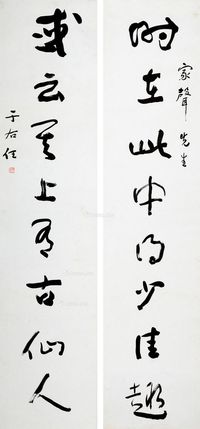 家聲先生
時在此中得少佳趣
或云其上有古仙人
于右任